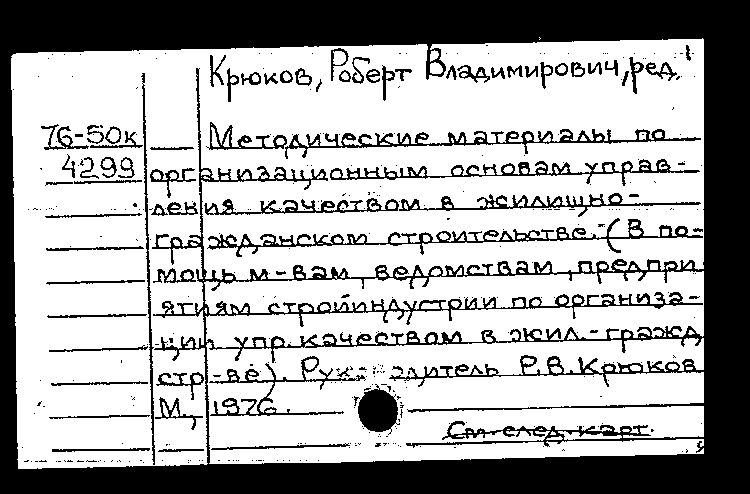 Крюков, Роберт Владимирович, ред.
76-50к Методические материалы по
4299 организационным основам управ-
ления качеством в жилищно-
гражданском строительстве.-(В по-
мощь м-вам, ведомствам, предпри
ятиям стройиндустрии по организа-
ции упр. качеством в жил.-гражд
стр-ве). Руководитель Р.В.Крюков
М., 1976.
См. след. карт.